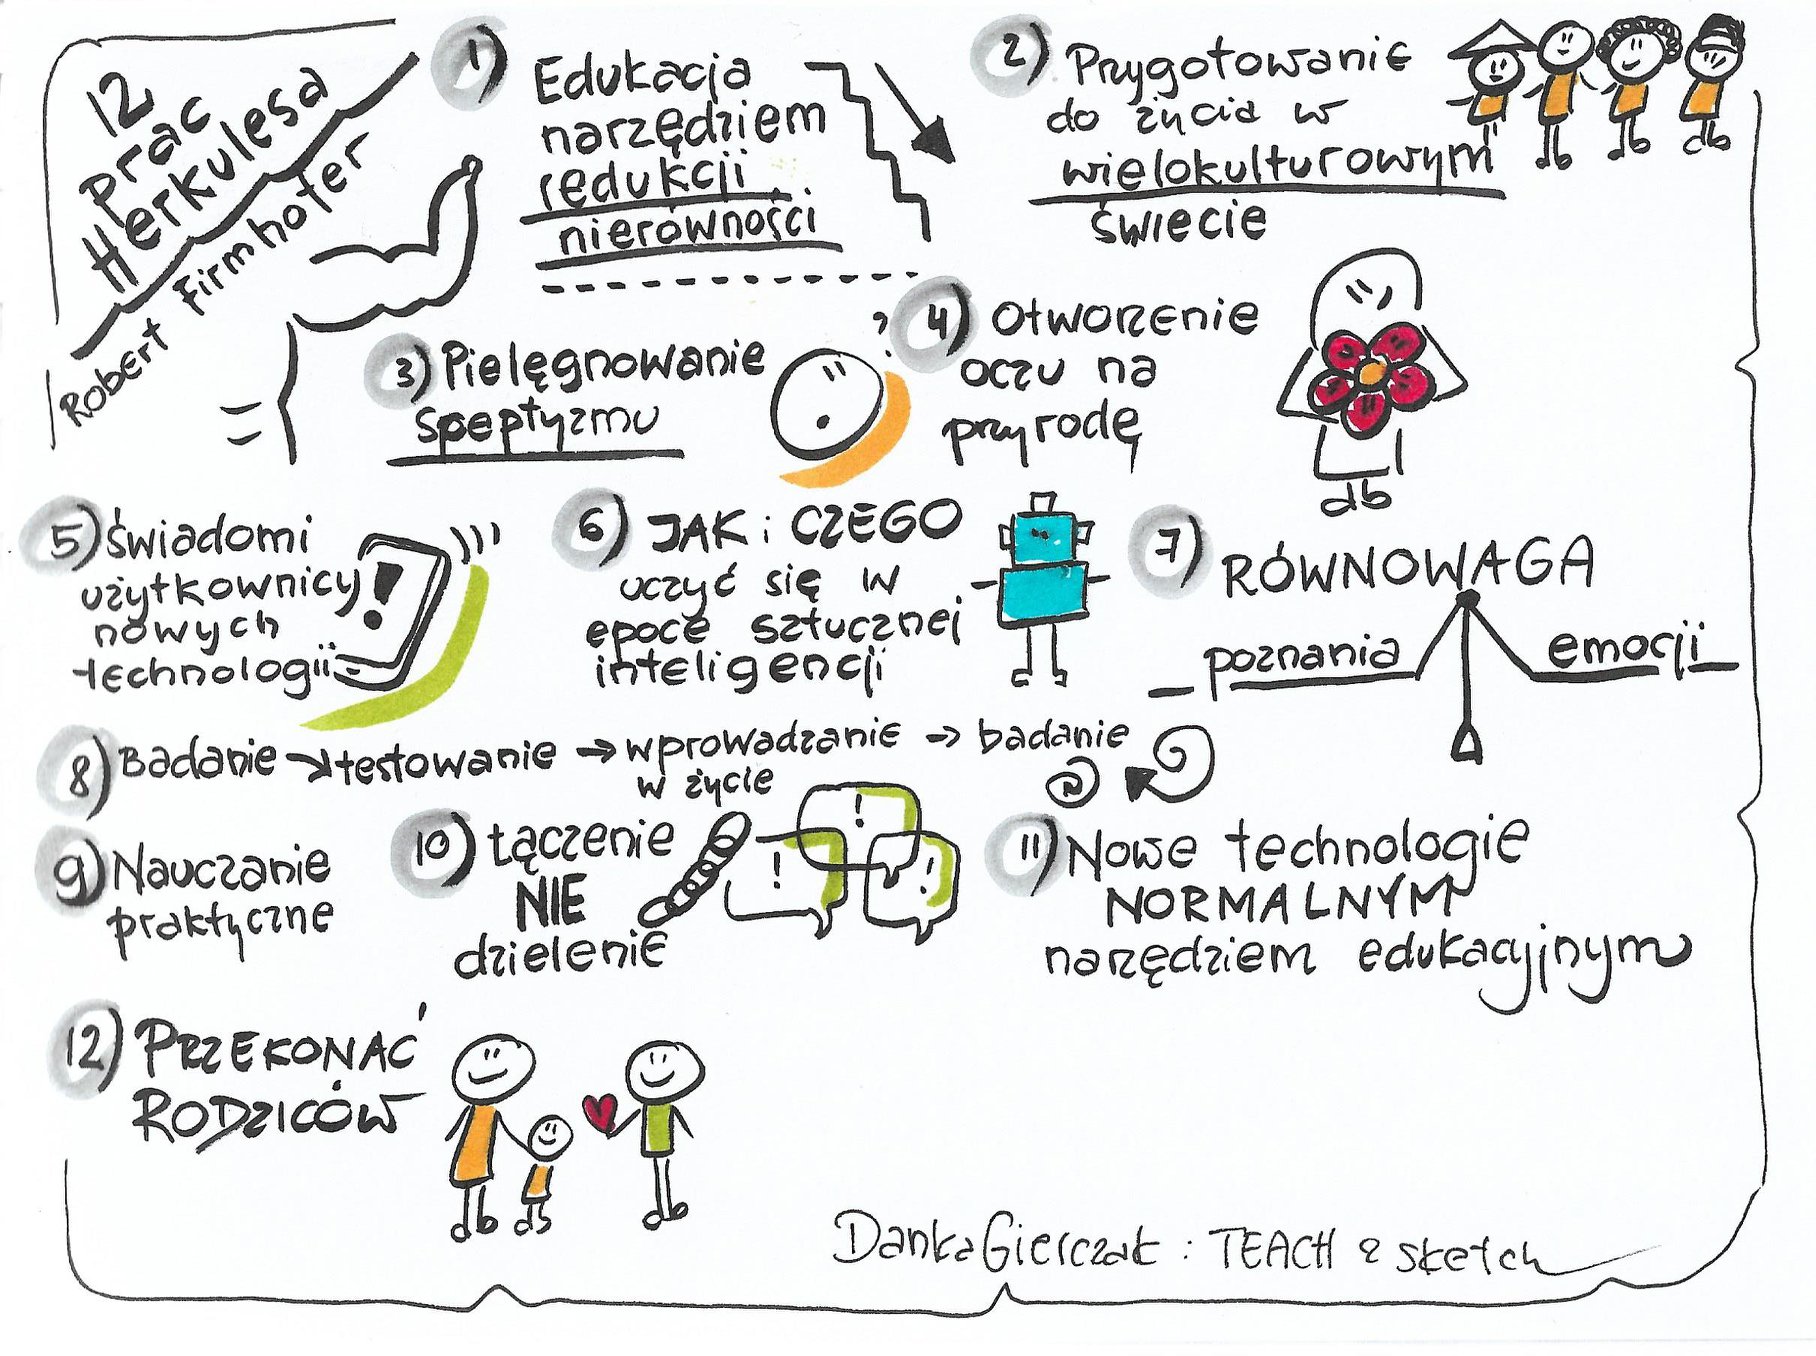 12
prac
Herkulesa
Robert Firmhofer
1) Edukacja
narzędziem
redukcji
nierówności
2) Przygotowanie
do życia w
wielokulturowym
świecie
3) Pielęgnowanie
speptyzmu
?
4) Otworzenie
oczu na
przyrodę
5) Świadomi
użytkownicy
nowych
technologii
!
6) JAK i CZEGO
uczyć się w
epoce sztucznej
inteligencji
7) RÓWNOWAGA
poznania emocji
8) Badanie → testowanie → wprowadzanie → badanie
w życie
9) Nauczanie
praktyczne
10) Łączenie
NIE
dzielenie
! ! !
11) Nowe technologie
NORMALNYM
narzędziem edukacyjnym
12) PRZEKONAĆ
RODZICÓW
Danka Gierczak : TEACH & sketch